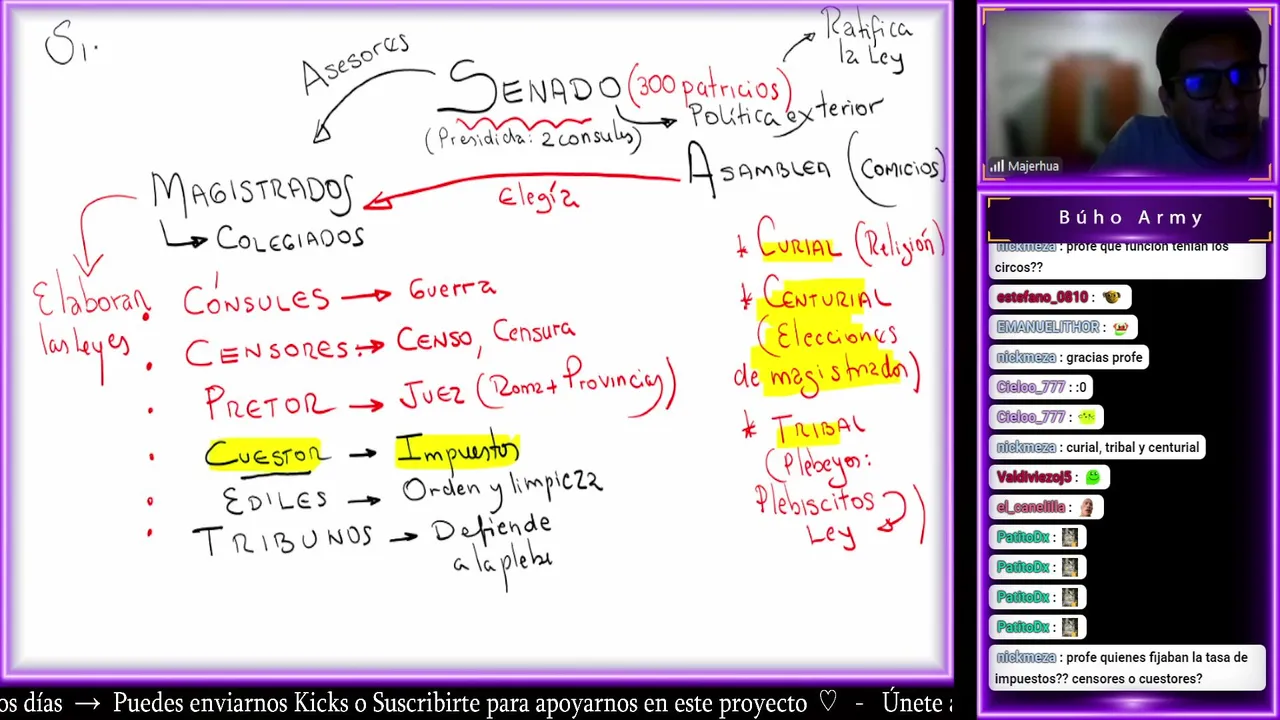 S1.
Asesores
SENADO (300 patricios)
Ratifica
la Ley
(Presidida: 2 consules)
Política exterior
ASAMBLEA (COMICIOS)
MAGISTRADOS
Elegía
COLEGIADOS
Elaboran
las leyes
CÓNSULES → Guerra
CENSORES → CENSO, Censura
PRETOR → JUEZ (Roma + Provincias)
CUESTOR → Impuestos
EDILES → Orden y limpieza
TRIBUNOS → Defiende
a la plebe
* CURIAL (Religión)
* CENTURIAL
(Elecciones
de magistrados)
* TRIBAL
(Plebeyos:
Plebiscitos
Ley)
Majerhua
Búho Army
nickmeza : profe que función tenían los
circos??
estefano_0810 :
EMANUELITHOR :
nickmeza : gracias profe
Cieloo_777 : :0
Cieloo_777 :
nickmeza : curial, tribal y centurial
Valdiviezoj5 :
el_canelilla :
PatitoDx :
PatitoDx :
PatitoDx :
PatitoDx :
nickmeza : profe quienes fijaban la tasa de
impuestos?? censores o cuestores?
os días → Puedes enviarnos Kicks o Suscribirte para apoyarnos en este proyecto ♡ - Únete a